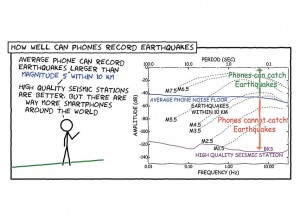 HOW WELL CAN PHONES RECORD EARTHQUAKES
AVERAGE PHONE CAN RECORD
EARTHQUAKES LARGER THAN
MAGNITUDE 5 WITHIN 10 KM
HIGH QUALITY SEISMIC STATIONS
ARE BETTER. BUT THERE ARE
WAY MORE SMARTPHONES
AROUND THE WORLD
PERIOD (SEC)
Phones can catch
Earthquakes
M7.5
M6.5
AVERAGE PHONE NOISE FLOOR
EARTHQUAKES
WITHIN 10 KM
M5.5
Phones cannot catch
Earthquakes
M4.5
M3.5
M2.5
M1.5
BKS
HIGH QUALITY SEISMIC STATION
AMPLITUDE (dB)
FREQUENCY (Hz)